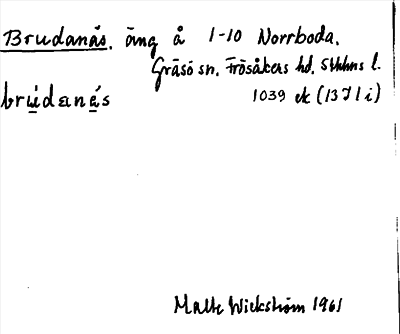 Brudanäs. äng å 1-10 Norrboda.
Gräsö sn. Frösåkers hd. Sthlms l.
brúdanás 1039 ek (13J1i)
Malte Wickström 1961